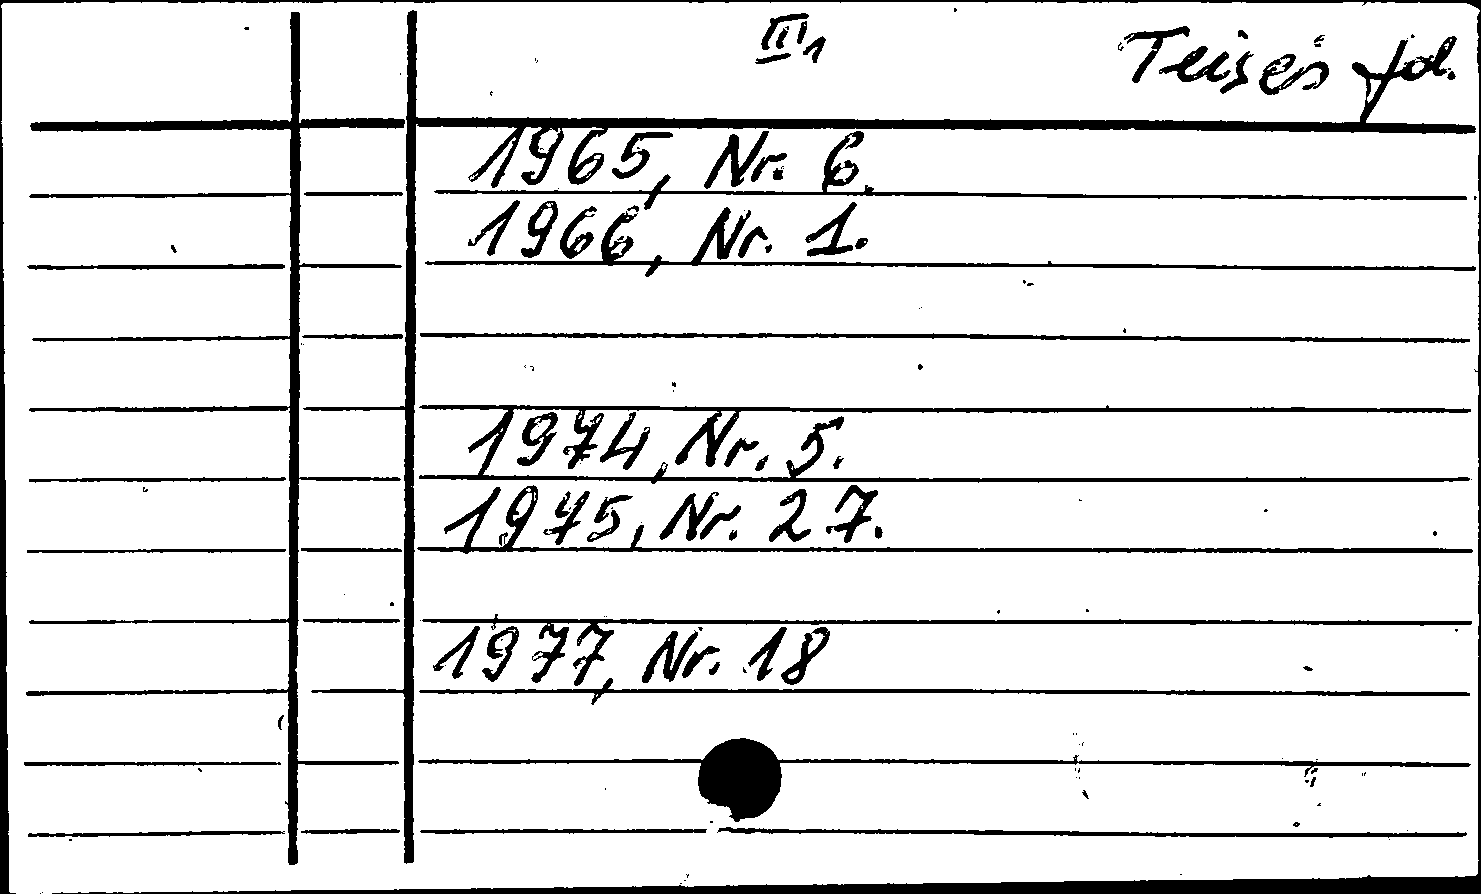 III1 Teisės fd.
1965, Nr. 6.
1966, Nr. 1.
1974, Nr. 5.
1975, Nr. 27.
1977, Nr. 18